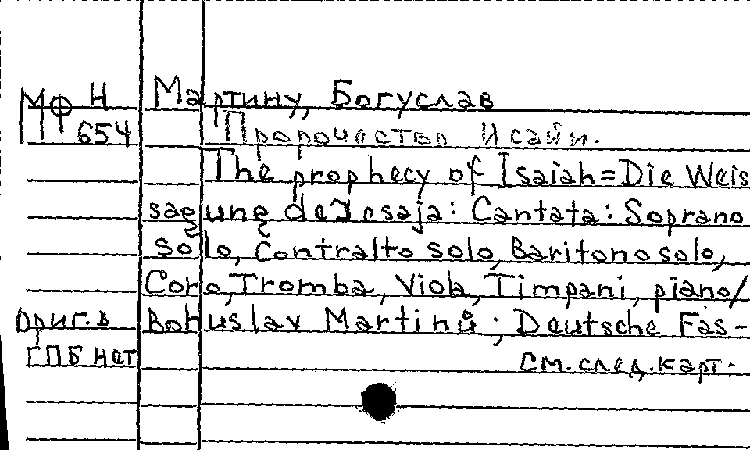 МФ Н Мартину, Богуслав
654 Пророчество Исайи.
The prophecy of Isaiah=Die Weis
sagung desJesaja: Cantata: Soprano
solo, Contralto solo, Baritono solo,
Coro, Tromba, Viola, Timpani, piano/
Ориг.в Bohuslav Martinů; Deutsche Fas-
ГПБ нет см.след.карт.